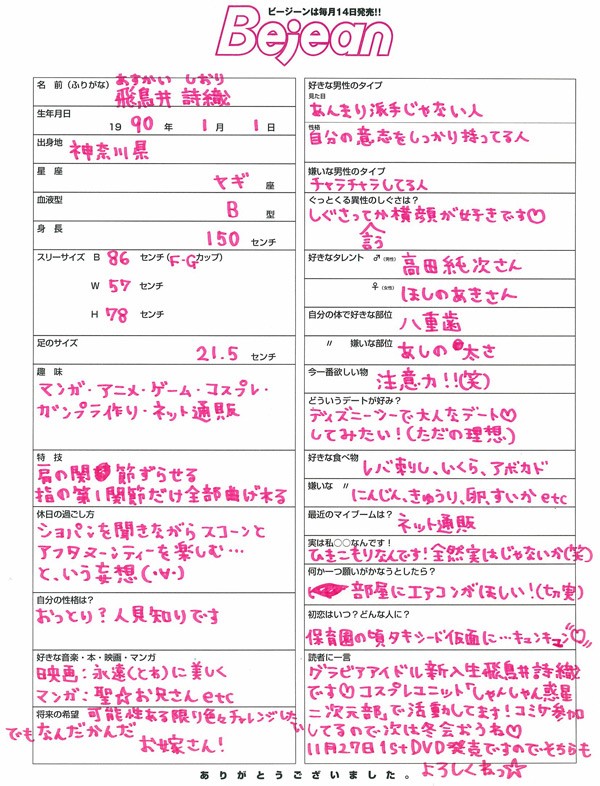 ビージーンは毎月14日発売!!
Bejean
名 前(ふりがな) あすかい しおり
飛鳥井 詩織
生年月日
19 90 年 1 月 1 日
出身地
神奈川県
星 座
ヤギ 座
血液型
B 型
身 長
150 センチ
スリーサイズ B 86 センチ(F-Gカップ)
W 57 センチ
H 78 センチ
足のサイズ
21.5 センチ
趣 味
マンガ・アニメ・ゲーム・コスプレ・
ガンプラ作り・ネット通販
特 技
肩の関節ずらせる
指の第1関節だけ全部曲げれる
休日の過ごし方
ショパンを聞きながらスコーンと
アフタヌーンティーを楽しむ…
と、いう妄想(・∀・)
自分の性格は?
おっとり?人見知りです
好きな音楽・本・映画・マンガ
映画:永遠(とわ)に美しく
マンガ:聖☆お兄さんetc
将来の希望 可能性ある限り色々チャレンジしたい
でもなんだかんだ
お嫁さん!
好きな男性のタイプ
見た目
あんまり派手じゃない人
性格
自分の意志をしっかり持ってる人
嫌いな男性のタイプ
チャラチャラしてる人
ぐっとくる異性のしぐさは?
しぐさってか横顔が好きです♡
言う
好きなタレント ♂(男性) 高田純次さん
♀(女性) ほしのあきさん
自分の体で好きな部位
八重歯
〃 嫌いな部位
あしの太さ
今一番欲しい物
注意力!!(笑)
どういうデートが好み?
ディズニーシーで大人なデート♡
してみたい!(ただの理想)
好きな食べ物
レバ刺し、いくら、アボカド
嫌いな 〃
にんじん、きゅうり、卵、すいかetc
最近のマイブームは?
ネット通販
実は私○○なんです!
ひきこもりなんです!全然実はじゃないか(笑)
何か一つ願いがかなうとしたら?
部屋にエアコンがほしい!(切実)
初恋はいつ?どんな人に?
保育園の頃タキシード仮面に…キュンキュン♡
読者に一言
グラビアアイドル新入生飛鳥井詩織
です♡コスプレユニット「しゃんしゃん惑星
二次元部」で活動してます!コミケ参加
してるので次は冬会おうね♡
11月27日1stDVD発売ですのでそちらも
よろしくねっ☆
ありがとうございました。